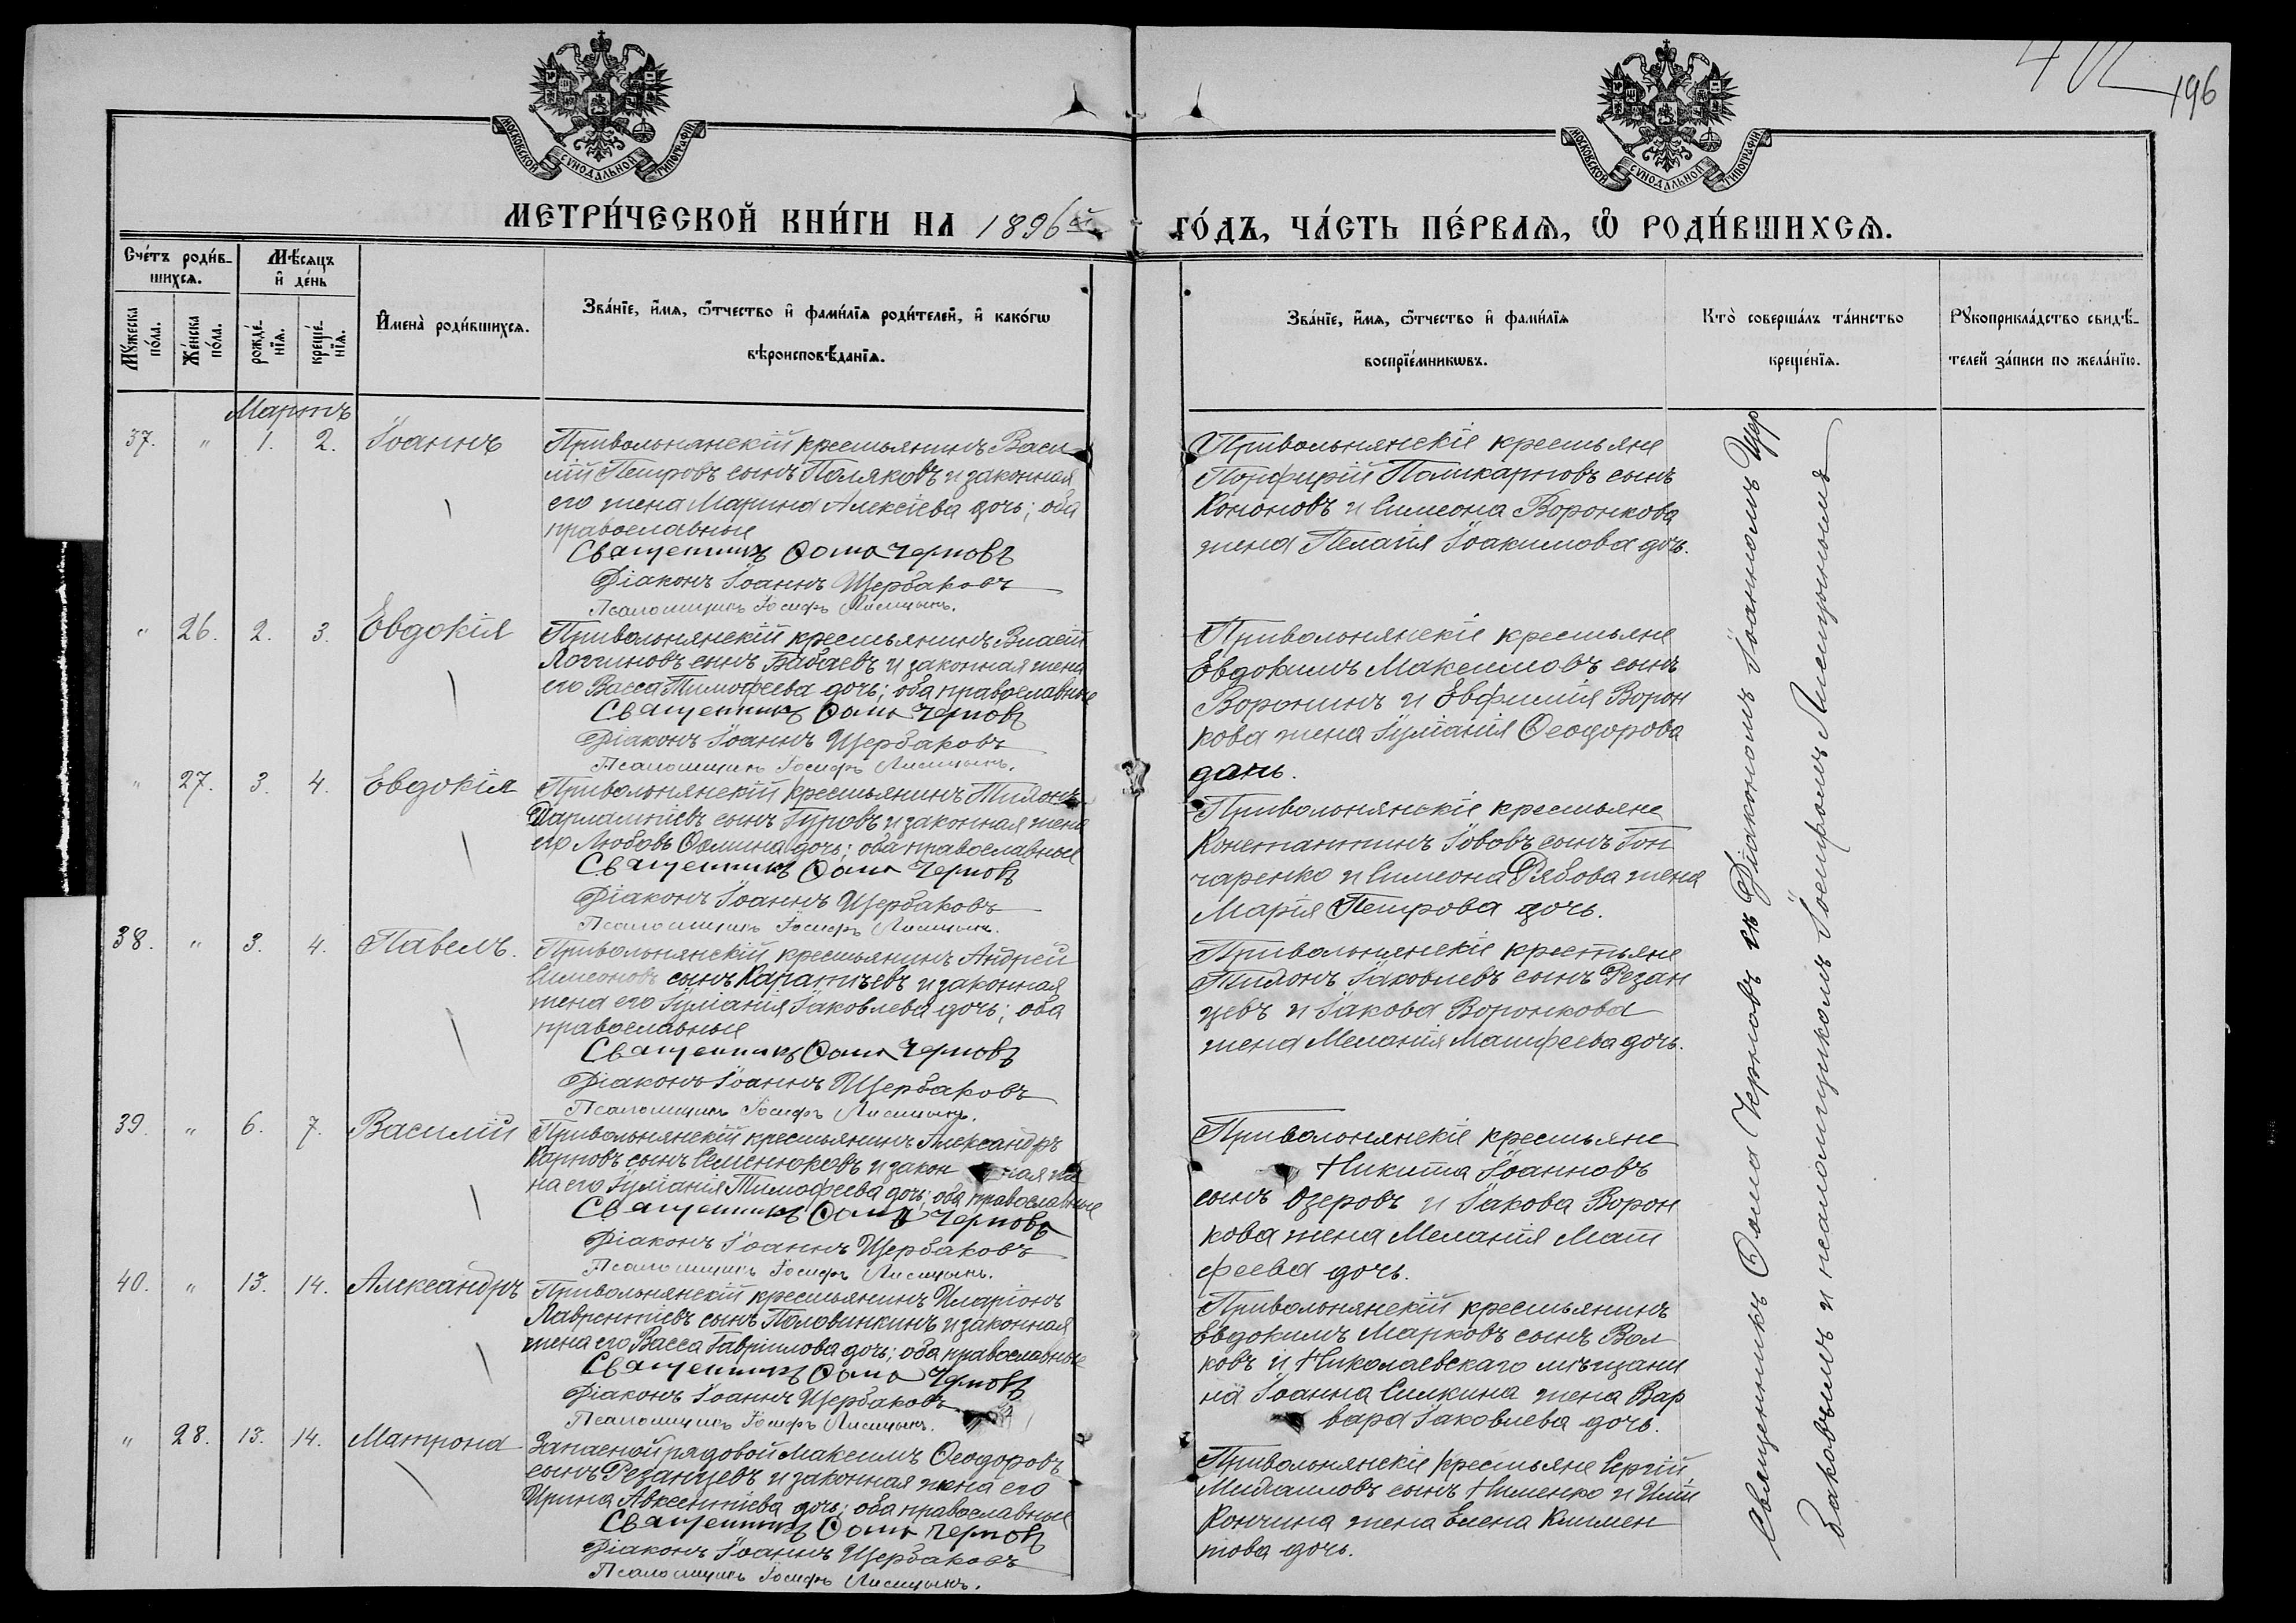 402
196
МОСКОВСКОЙ СѴНОДАЛЬНОЙ ТИПОГРАФІИ
МОСКОВСКОЙ СѴНОДАЛЬНОЙ ТИПОГРАФІИ
МЕТРИ́ЧЕСКОЙ КНИ́ГИ НА 1896й ГО́ДЪ, ЧА́СТЬ ПЕ́РВАѦ, Ѡ РОДИ́ВШИХСѦ.
Сче́тъ роди́в-
шихсѧ.
Мѣ́сѧцъ
и де́нь
Мꙋ́жеска
по́ла.
Же́нска
по́ла.
рожде́-
нїѧ.
креще́-
нїѧ.
И҆мена̀ роди́вшихсѧ.
Зва́нїе, и҆́мѧ, ѻ҆́тчество и҆ фами́лїѧ роди́телей, и҆ како́гѡ
вѣроисповѣ́данїѧ.
Зва́нїе, и҆́мѧ, ѻ҆́тчество и҆ фами́лїѧ
воспрїе́мникѡвъ.
Кто̀ соверша́лъ та́инство
креще́нїѧ.
Рꙋкоприкла́дство свидѣ́-
телей за́писи по жела́нїю.
Мартъ
37. " 1. 2. Іоаннъ
Привольнянскій крестьянинъ Васи
лій Петровъ сынъ Поляковъ и законная
его жена Марина Алексіева дочь; оба
православные
Священникъ Ѳома Черновъ
Діаконъ Іоаннъ Щербаковъ
Псаломщикъ Іосифъ Лисицынъ.
Привольнянскіе крестьяне
Порфирій Поликарповъ сынъ
Кононовъ и Симеона Воронкова
жена Пелагія Іоакимова дочь.
" 26. 2. 3. Евдокія
Привольнянскій крестьянинъ Власій
Логгиновъ сынъ Бабаевъ и законная жена
его Васса Тимофеева дочь; оба православные
Священникъ Ѳома Черновъ
Діаконъ Іоаннъ Щербаковъ
Псаломщикъ Іосифъ Лисицынъ.
Привольнянскіе крестьяне
Евдокимъ Максимовъ сынъ
Воронинъ и Евфимія Ворон
кова жена Іуліанія Ѳеодорова
дочь.
" 27. 3. 4. Евдокія
Привольнянскій крестьянинъ Тихонъ
Харлампіевъ сынъ Гуровъ и законная жена
его Любовь Ѳомина дочь; оба православные
Священникъ Ѳома Черновъ
Діаконъ Іоаннъ Щербаковъ
Псаломщикъ Іосифъ Лисицынъ.
Привольнянскіе крестьяне
Константинъ Іововъ сынъ Гон
чаренко и Симеона Рябова жена
Марія Петрова дочь.
38. " 3. 4. Павелъ.
Привольнянскій крестьянинъ Андрей
Симеоновъ сынъ Каратѣевъ и законная
жена его Іуліанія Іаковлева дочь; оба
православные
Священникъ Ѳома Черновъ
Діаконъ Іоаннъ Щербаковъ
Псаломщикъ Іосифъ Лисицынъ.
Привольнянскіе крестьяне
Тихонъ Іаковлевъ сынъ Резан
цевъ и Іакова Воронкова
жена Меланія Матфеева дочь.
39. " 6. 7. Василій
Привольнянскій крестьянинъ Александръ
Карповъ сынъ Семенюковъ и закон ная же
на его Іуліанія Тимофеева дочь; оба православные
Священникъ Ѳома Черновъ
Діаконъ Іоаннъ Щербаковъ
Псаломщикъ Іосифъ Лисицынъ.
Привольнянскіе крестьяне
Никита Іоанновъ
сынъ Озеровъ и Іакова Ворон
кова жена Меланія Мат
феева дочь.
40. " 13. 14. Александръ
Привольнянскій крестьянинъ Иларіонъ
Лаврентіевъ сынъ Половинкинъ и законная
жена его Васса Гавріилова дочь; оба православные
Священникъ Ѳома Черновъ
Діаконъ Іоаннъ Щербаковъ
Псаломщикъ Іосифъ Лисицынъ.
Привольнянскій крестьянинъ
Евдокимъ Марковъ сынъ Вол
ковъ и Николаевскаго мѣщани
на Іоанна Силкина жена Вар
вара Іаковлева дочь.
" 28. 13. 14. Матрона
Запасной рядовой Максимъ Ѳеодоровъ
сынъ Резанцевъ и законная жена его
Ирина Авксентіева дочь; оба православные
Священникъ Ѳома Черновъ
Діаконъ Іоаннъ Щербаковъ
Псаломщикъ Іосифъ Лисицынъ.
Привольнянскіе крестьяне Сергій
Михаиловъ сынъ Нименко и
Кончина жена Елена Климен
това дочь.
Священникъ Ѳома Черновъ съ Діакономъ Іоанномъ Щер
баковымъ и псаломщикомъ Іосифомъ Лисицынымъ